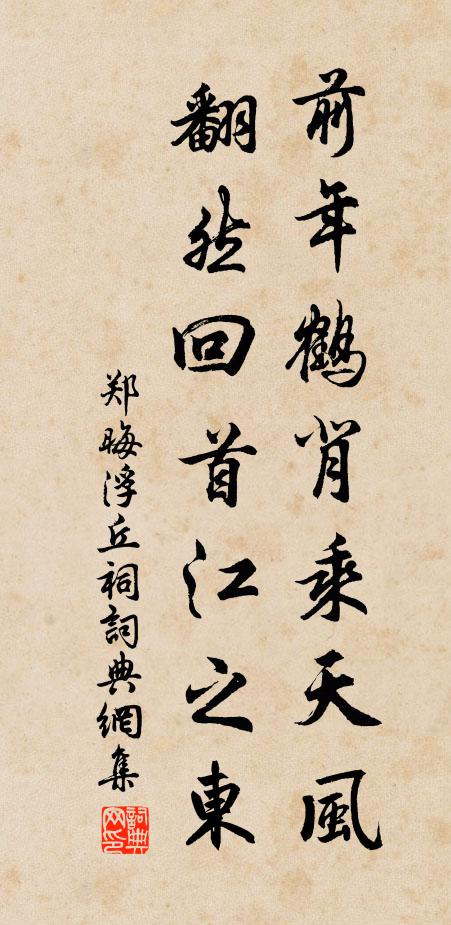 前年鹤背乘天風
翻然回首江之東
郑晦浮丘祠詞典網集
詞典网印